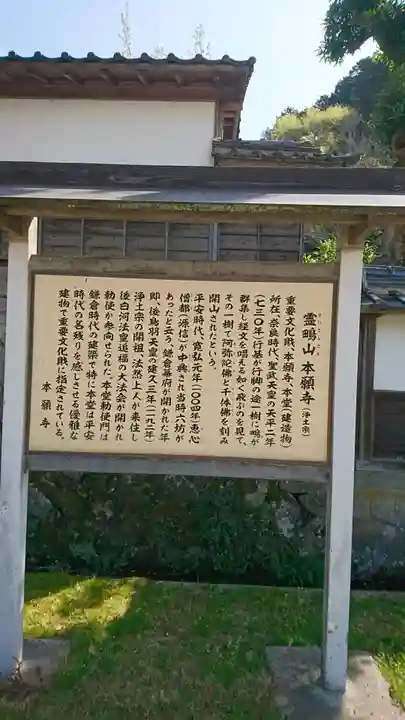 霊鴫山 本願寺（浄土宗）
重要文化財、本願寺、本堂（建造物）
所在、奈良時代、聖武天皇の天平二年
（七三〇年）行基が行脚の途一樹に鴫が
群集し経文を唱える如く飛ぶのを見て、
その一樹で阿弥陀佛と千体佛を刻み
開山されたという。
平安時代、寛弘元年（一〇〇四年）恵心
僧都（源信）が中興され当時六坊が
あったと云う、鎌倉幕府が開かれた年
即、後鳥羽天皇の建久三年（一一九二年）
浄土宗の開祖、法然上人が来住し
後白河法皇追福の大法会が開かれ
勅使が参向せられた、本堂勅使門は
鎌倉時代の建築で特に本堂は平安
時代の名残りを感じさせる優雅な
建物で重要文化財に指定されている。
本願寺